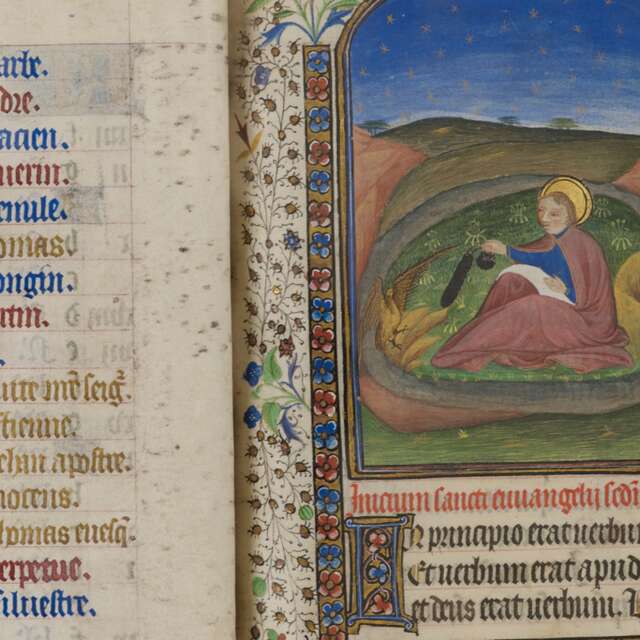 arbe.
dre.
acien.
uerin.
emule.
homas
ongin.
atin.
uitte mꝰ seigᷓ.
stienne.
ehan apostre.
nocens.
homas euesq̄.
erpetue.
siluestre.
Inicium sancti euuangelij scd̄m
In principio erat uerbum
Et uerbum erat apud
et deus erat uerbum.